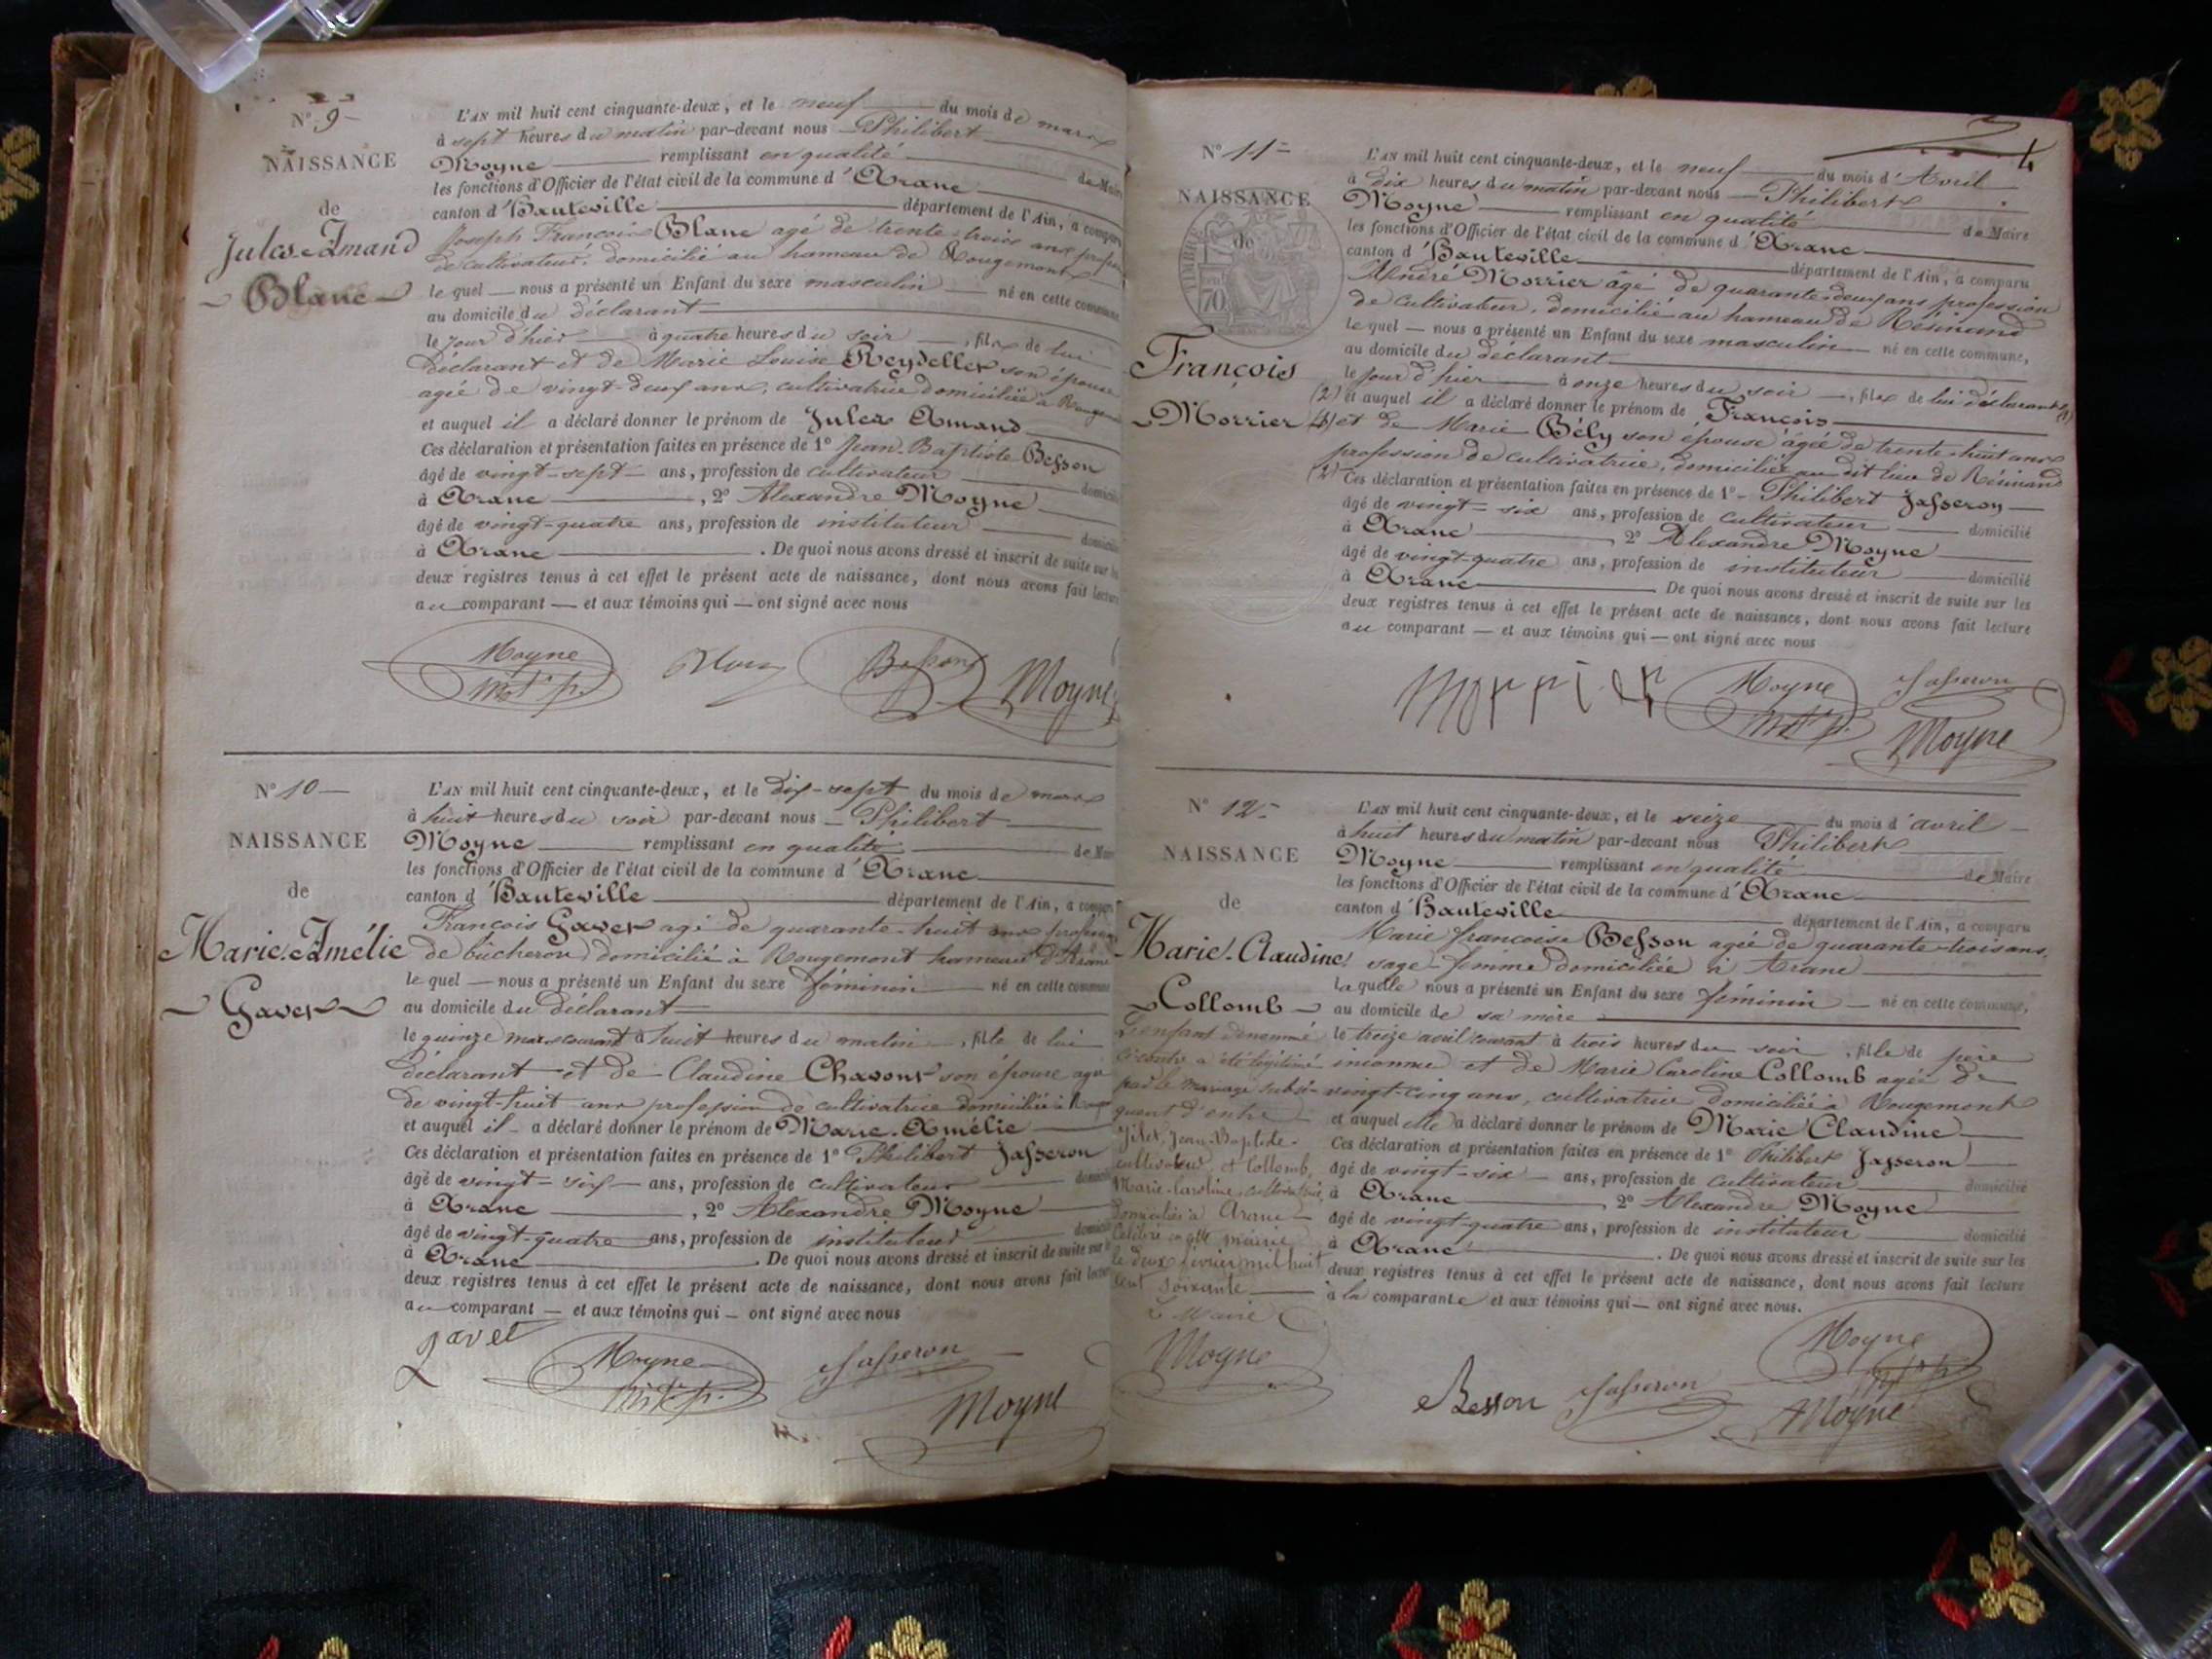 N° 9
NAISSANCE
de
Jules Amand
Blanc
L'AN mil huit cent cinquante-deux, et le neuf du mois de mars
à sept heures du matin par-devant nous Philibert
Moyne remplissant en qualité de Maire
les fonctions d'Officier de l'état civil de la commune d'Arane
canton d'Hauteville département de l'Ain, a comparu
Joseph François Blanc agé de trente trois ans profession
de cultivateur, domicilié au hameau de Rougemont
lequel nous a présenté un Enfant du sexe masculin né en cette commune
au domicile du déclarant
le jour d'hier à quatre heures du soir, fils de lui
déclarant et de Marie Louise Reydellet son épouse
agée de vingt-deux ans, cultivatrice domiciliée à
et auquel il a déclaré donner le prénom de Jules Amand
Ces déclaration et présentation faites en présence de 1° Jean Baptiste Besson
âgé de vingt-sept ans, profession de cultivateur domicilié
à Arane, 2° Alexandre Moyne
âgé de vingt-quatre ans, profession de instituteur domicilié
à Arane. De quoi nous avons dressé et inscrit de suite sur les
deux registres tenus à cet effet le présent acte de naissance, dont nous avons fait lecture
au comparant et aux témoins qui ont signé avec nous
Moyne Blanc Besson Moyne
N° 10
NAISSANCE
de
Marie Amélie
Gavet
L'AN mil huit cent cinquante-deux, et le dix-sept du mois de mars
à huit heures du soir par-devant nous Philibert
Moyne remplissant en qualité de Maire
les fonctions d'Officier de l'état civil de la commune d'Arane
canton d'Hauteville département de l'Ain, a comparu
François Gavet agé de quarante-huit ans profession
de bûcheron domicilié à Rougemont hameau d'Arane
lequel nous a présenté un Enfant du sexe féminin né en cette commune
au domicile du déclarant
le quinze mars courant à huit heures du matin, fille de lui
déclarant et de Claudine Chavent son épouse agée
de vingt-huit ans profession de cultivatrice domiciliée à
et auquel il a déclaré donner le prénom de Marie Amélie
Ces déclaration et présentation faites en présence de 1° Philibert Jasseron
âgé de vingt-six ans, profession de cultivateur domicilié
à Arane, 2° Alexandre Moyne
âgé de vingt-quatre ans, profession de instituteur domicilié
à Arane. De quoi nous avons dressé et inscrit de suite sur les
deux registres tenus à cet effet le présent acte de naissance, dont nous avons fait lecture
au comparant et aux témoins qui ont signé avec nous
gavet Moyne Jasseron
Moyne
4
N° 11
NAISSANCE
de
TIMBRE
70
François
Morrier
L'AN mil huit cent cinquante-deux, et le neuf du mois d'Avril
à dix heures du matin par-devant nous Philibert
Moyne remplissant en qualité de Maire
les fonctions d'Officier de l'état civil de la commune d'Arane
canton d'Hauteville département de l'Ain, a comparu
André Morrier âgé de quarante-deux ans profession
de cultivateur, domicilié au hameau de Résinand
lequel nous a présenté un Enfant du sexe masculin né en cette commune,
au domicile du déclarant
le jour d'hier à onze heures du soir, fils de lui déclarant (1)
(2) et auquel il a déclaré donner le prénom de François
(1) et de Marie Bély son épouse âgée de trente-huit ans
profession de cultivatrice, domiciliée au dit lieu de Résinand
(2) Ces déclaration et présentation faites en présence de 1° Philibert Jasseron
âgé de vingt-six ans, profession de cultivateur domicilié
à Arane, 2° Alexandre Moyne
âgé de vingt-quatre ans, profession de instituteur domicilié
à Arane. De quoi nous avons dressé et inscrit de suite sur les
deux registres tenus à cet effet le présent acte de naissance, dont nous avons fait lecture
au comparant et aux témoins qui ont signé avec nous
Morrier Moyne Jasseron
Moyne
N° 12
NAISSANCE
de
Marie Claudine
Collomb
L'enfant dénommé
ci contre a été légitimé
par le mariage subsé-
quent d'entre
Jean-Baptiste
cultivateur, et Collomb,
Marie-Caroline, cultivatrice,
domiciliés à Arane
Célébré en cette mairie
le deux février mil huit
cent soixante
Le Maire
Moyne
L'AN mil huit cent cinquante-deux, et le seize du mois d'avril
à huit heures du matin par-devant nous Philibert
Moyne remplissant en qualité de Maire
les fonctions d'Officier de l'état civil de la commune d'Arane
canton d'Hauteville département de l'Ain, a comparu
Marie françoise Besson agée de quarante-trois ans,
sage-femme domiciliée à Arane
laquelle nous a présenté un Enfant du sexe féminin né en cette commune,
au domicile de sa mère
le treize avril courant à trois heures du soir, fille de père
inconnu et de Marie Caroline Collomb agée de
vingt-cinq ans, cultivatrice domiciliée à Rougemont
et auquel elle a déclaré donner le prénom de Marie Claudine
Ces déclaration et présentation faites en présence de 1° Philibert Jasseron
âgé de vingt-six ans, profession de cultivateur domicilié
à Arane, 2° Alexandre Moyne
âgé de vingt-quatre ans, profession de instituteur domicilié
à Arane. De quoi nous avons dressé et inscrit de suite sur les
deux registres tenus à cet effet le présent acte de naissance, dont nous avons fait lecture
à la comparante et aux témoins qui ont signé avec nous.
Besson Jasseron Moyne
Moyne